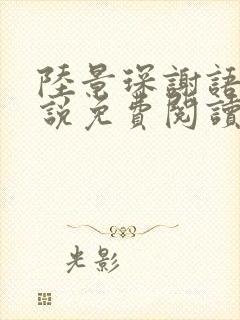 陸景琛謝語
說免費閱讀
光影